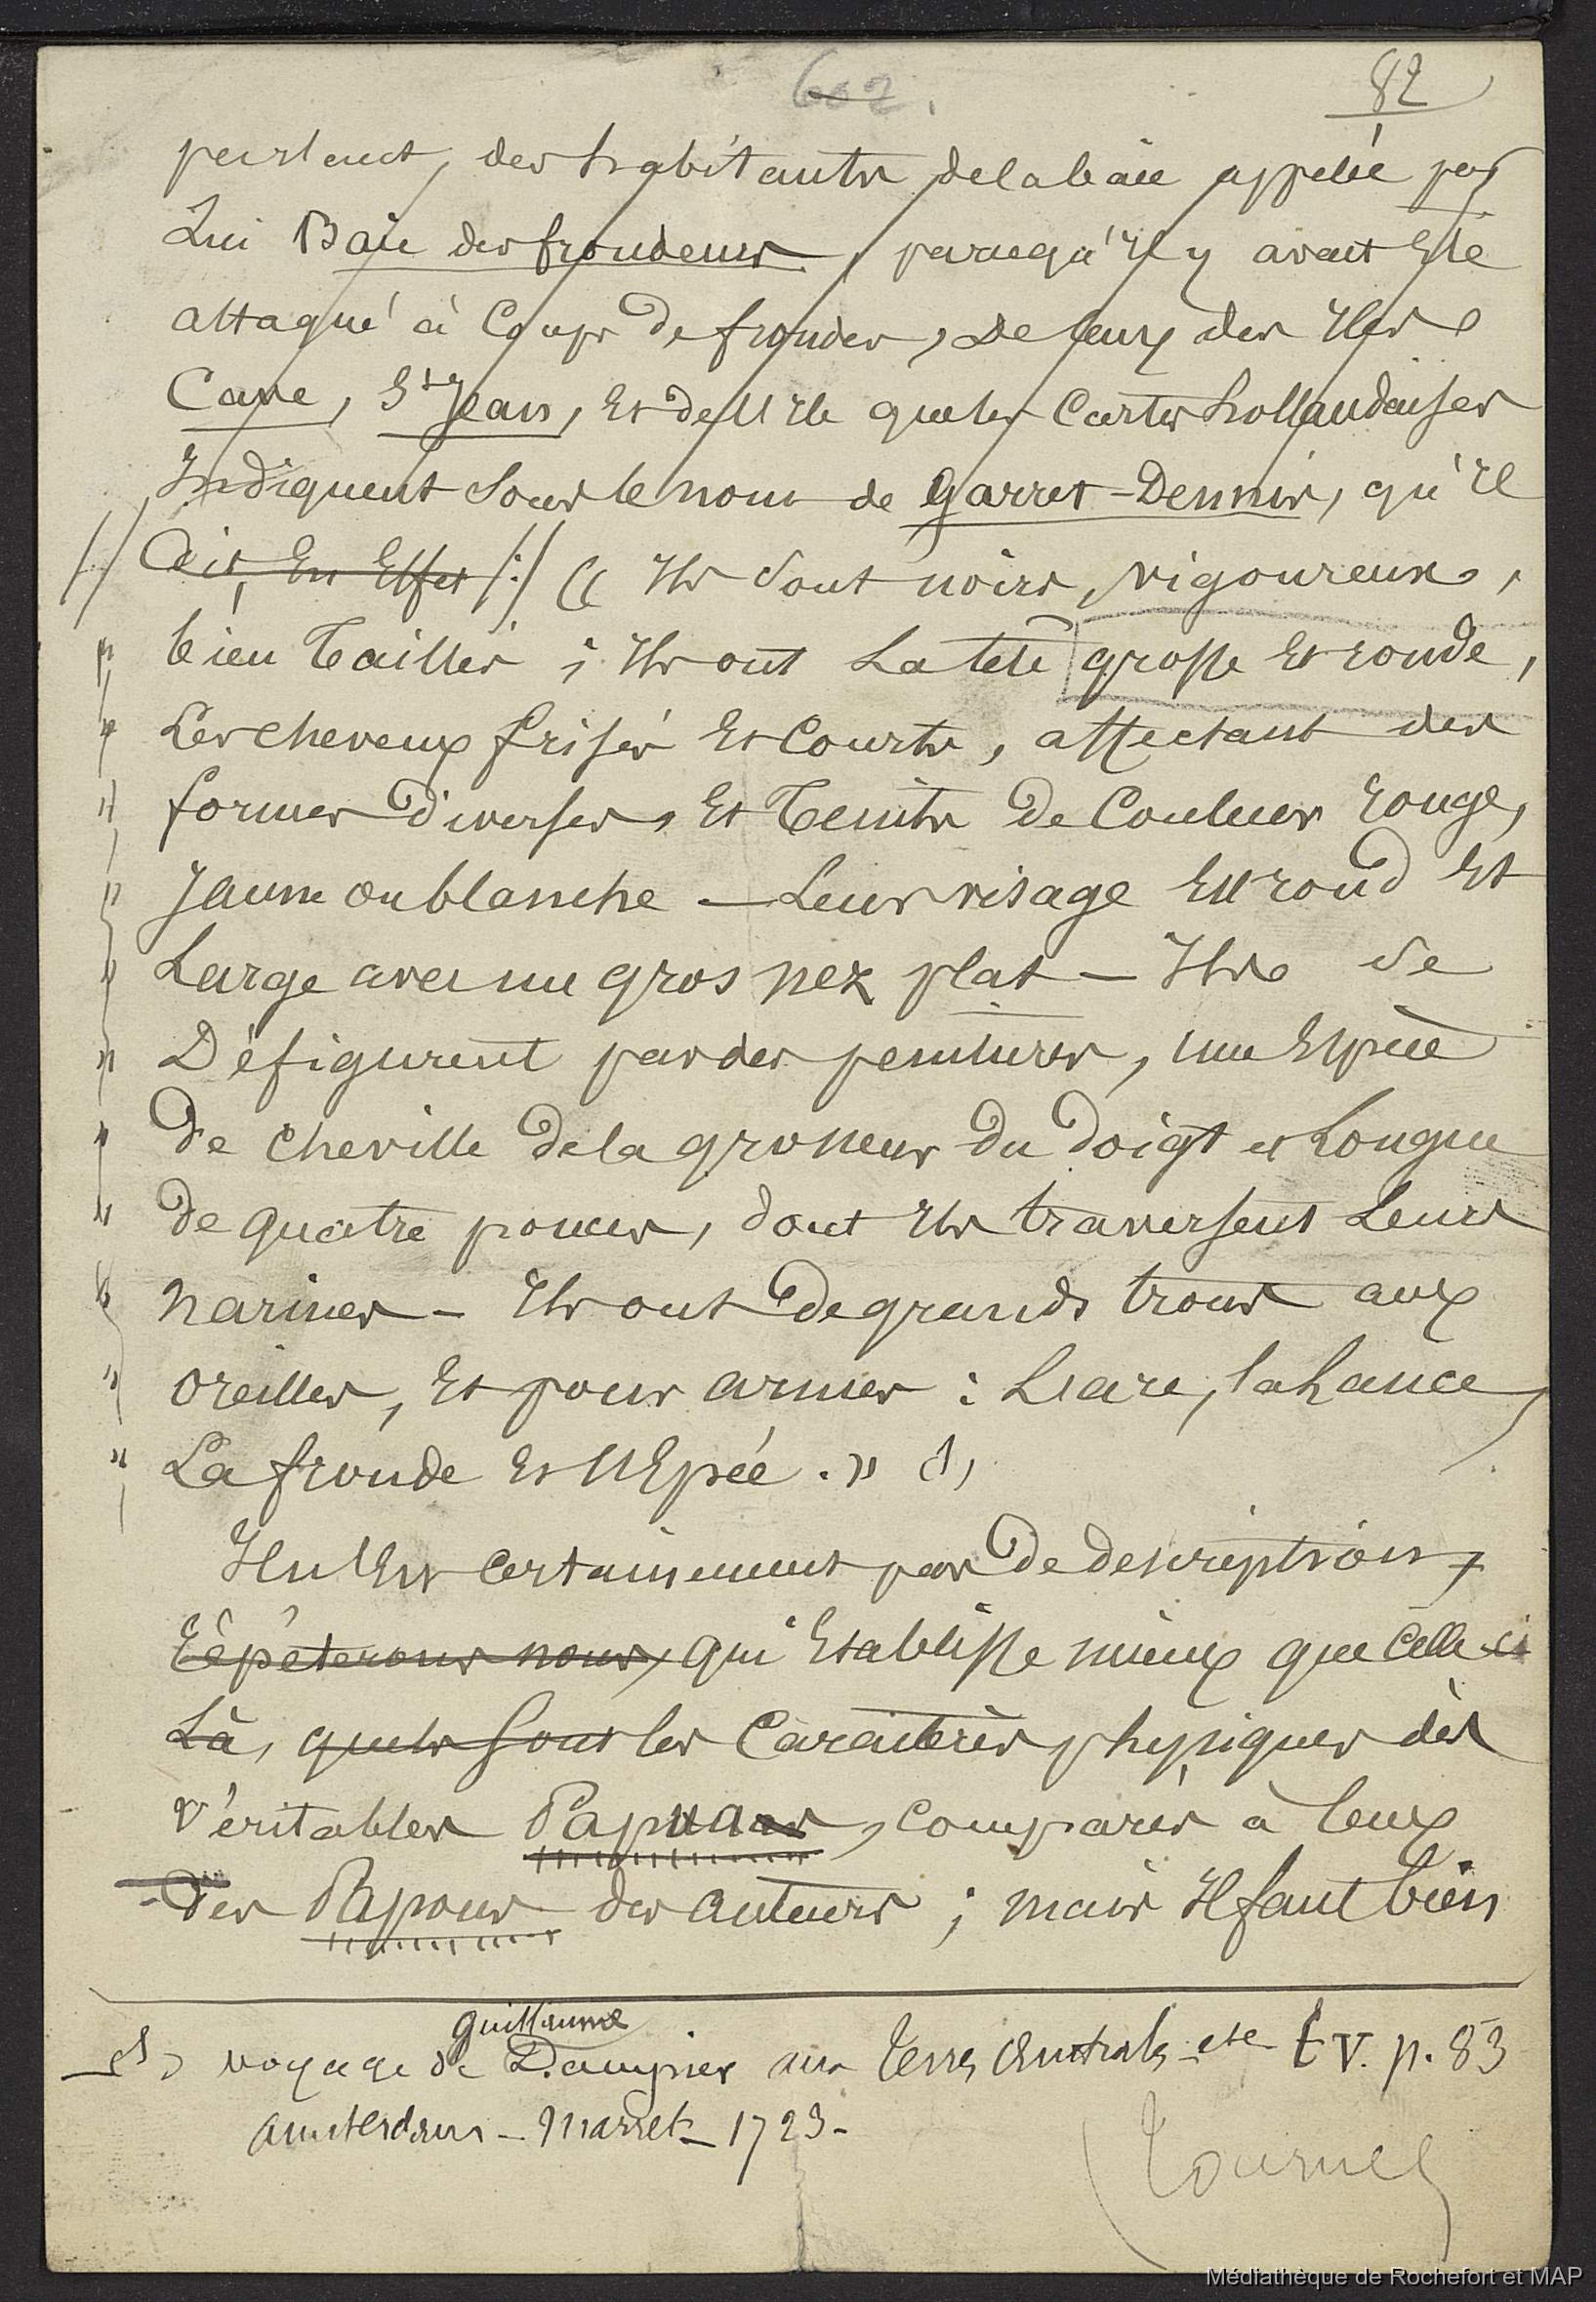 602.
82
parlant, des habitants de la baie appelée par
Lui Baie des frondeurs, parcequ'il y avait Eté
attaqué à Coups de frondes, De ceux des Iles
Cave, St Jean, Et de l'Ile que les Cartes hollandaises
Indiquent sous le nom de Garret-Dennis, qu'il
Dit, En Effet /:/ « Ils sont noirs, vigoureux,
bien Taillés ; Ils ont La tête grosse Et ronde,
Les cheveux frisés Et Courts, affectant des
formes Diverses, Et Teints De Couleur rouge,
Jaune ou blanche — Leur visage Est rond Et
Large avec un gros nez plat — Ils se
Défigurent par des peintures, une Espèce
De cheville de la grosseur Du Doigt et Longue
De quatre pouces, dont Ils traversent Leurs
narines — Ils ont De grands trous aux
oreilles, Et pour armes : L'arc, la Lance,
La fronde Et l'Epée. » (1)
Il n'Est certainement pas De description,
répéterons nous, qui Etablisse mieux que Celle-ci
Là, quels sont les Caractères physiques des
véritables Papuas, comparés à Ceux
-des Papous des auteurs ; mais Il faut bien
(1) voyage de Guillaume Dampier aux Terres Australes etc t V. p. 83
Amsterdam — Marret — 1723 —
Tournez
Médiathèque de Rochefort et MAP